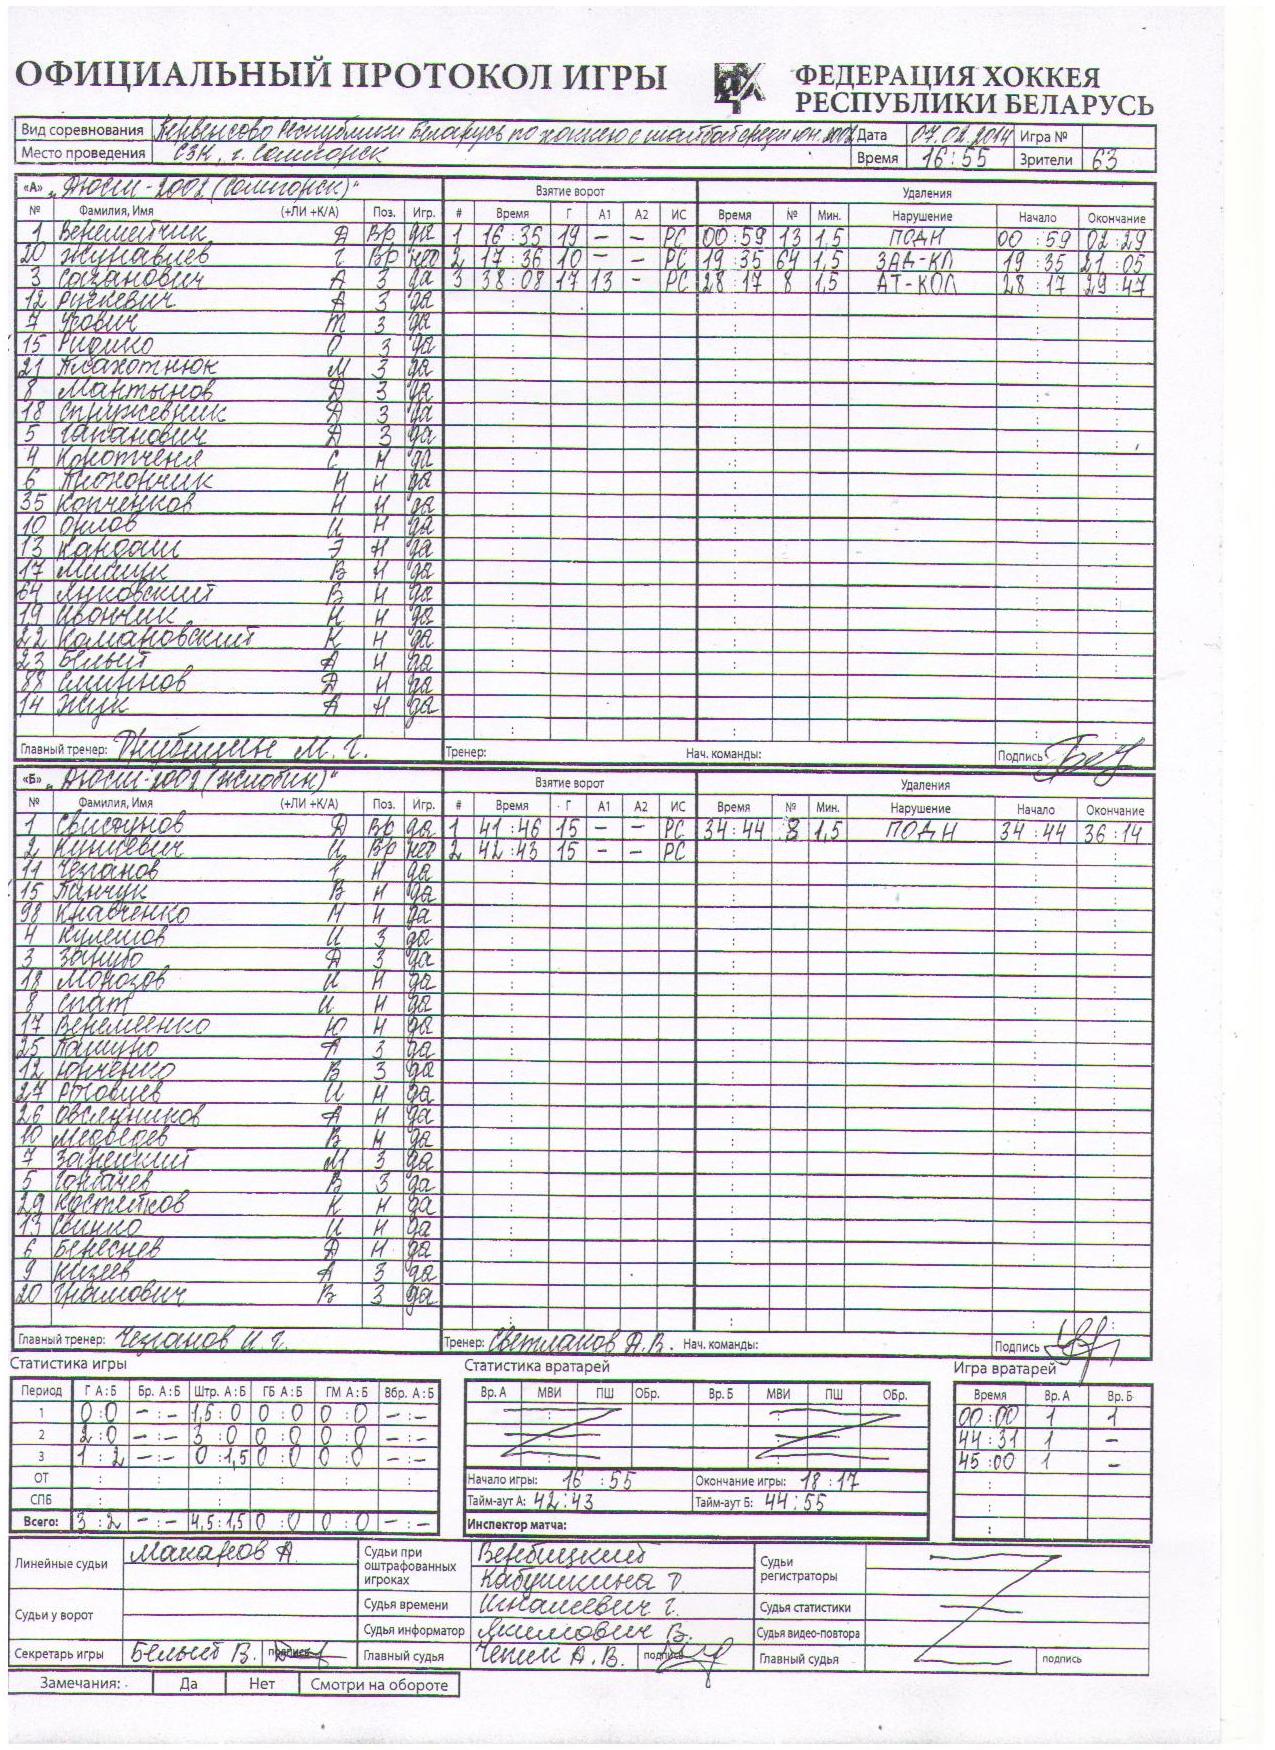 ОФИЦИАЛЬНЫЙ ПРОТОКОЛ ИГРЫ
ФЕДЕРАЦИЯ ХОККЕЯ
РЕСПУБЛИКИ БЕЛАРУСЬ
Вид соревнования Первенство Республики Беларусь по хоккею с шайбой среди юн. 2002 Дата 07.02.2014 Игра №
Место проведения СЗК, г. Солигорск Время 16:55 Зрители 63
«А» "ДЮСШ-2002 (Солигорск)" Взятие ворот Удаления
№ Фамилия, Имя (+ЛИ +К/А) Поз. Игр. # Время Г А1 А2 ИС Время № Мин. Нарушение Начало Окончание
1 Веремейчик А Вр да 1 16:35 19 – – РС 00:59 13 1,5 ПОДН 00:59 02:29
20 Журавлев Г Вр нет 2 17:36 10 – – РС 19:35 64 1,5 ЗАД-КЛ 19:35 21:05
3 Сазанович А З да 3 38:08 17 13 – РС 28:17 8 1,5 АТ-КОЛ 28:17 29:47
12 Руткевич А З да
7 Угович Т З да
15 Ридико О З да
21 Плахотнюк М З да
8 Мартынов Д З да
18 Спиржевник Д З да
5 Гапанович Д З да
4 Коротченя С Н да
6 Прокопчик Н Н да
35 Копченков Н Н да
10 Орлов И Н да
13 Кандаш Э Н да
17 Мищук В Н да
64 Янковский В Н да
19 Ивончик Н Н да
22 Комановский К Н да
23 Белый А Н да
88 Смирнов Д Н да
14 Жук А Н да
Главный тренер: Трубицин М. Г. Тренер: Нач. команды: Подпись
«Б» "ДЮСШ-2002 (Жлобин)" Взятие ворот Удаления
№ Фамилия, Имя (+ЛИ +К/А) Поз. Игр. # Время Г А1 А2 ИС Время № Мин. Нарушение Начало Окончание
1 Свистунов Д Вр да 1 41:46 15 – – РС 34:44 8 1,5 ПОДН 34:44 36:14
2 Кунцевич И Вр нет 2 42:43 15 – – РС
11 Чезганов Г Н да
15 Панчук В Н да
98 Кравченко Н Н да
4 Кулешов И З да
3 Занко Д З да
18 Морозов И Н да
8 Спат И Н да
17 Веремеенко Ю Н да
25 Пашуно А З да
12 Юрченко В З да
27 Роговцев И Н да
26 Овсянников А Н да
10 Медведев В Н да
7 Зарецкий М З да
5 Горбачев В З да
29 Костюков К Н да
13 Свинко И Н да
6 Береснев Д Н да
9 Кизеев А З да
20 Громович В З да
Главный тренер: Чезганов И. Г. Тренер: Светлаков А.В. Нач. команды: Подпись
Статистика игры Статистика вратарей Игра вратарей
Период Г А:Б Бр. А:Б Штр. А:Б ГБ А:Б ГМ А:Б Вбр. А:Б Вр. А МВИ ПШ Обр. Вр. Б МВИ ПШ Обр. Время Вр. А Вр. Б
1 0:0 –:– 1,5:0 0:0 0:0 –:– 00:00 1 1
2 2:0 –:– 3:0 0:0 0:0 –:– 44:31 1 –
3 1:2 –:– 0:1,5 0:0 0:0 –:– 45:00 1 –
ОТ : : : : : : Начало игры: 16:55 Окончание игры: 18:17
СПБ : : Тайм-аут А: 42:43 Тайм-аут Б: 44:55
Всего: 3:2 –:– 4,5:1,5 0:0 0:0 –:– Инспектор матча:
Линейные судьи Макаров А. Судьи при оштрафованных игроках Вербицкий Судьи регистраторы
Кабушкина Т.
Судьи у ворот Судья времени Игнашевич Г. Судья статистики
Судья информатор Якимович В. Судья видео-повтора
Секретарь игры Белый В. подпись Главный судья Чепик А.В. подпись Главный судья подпись
Замечания: Да Нет Смотри на обороте